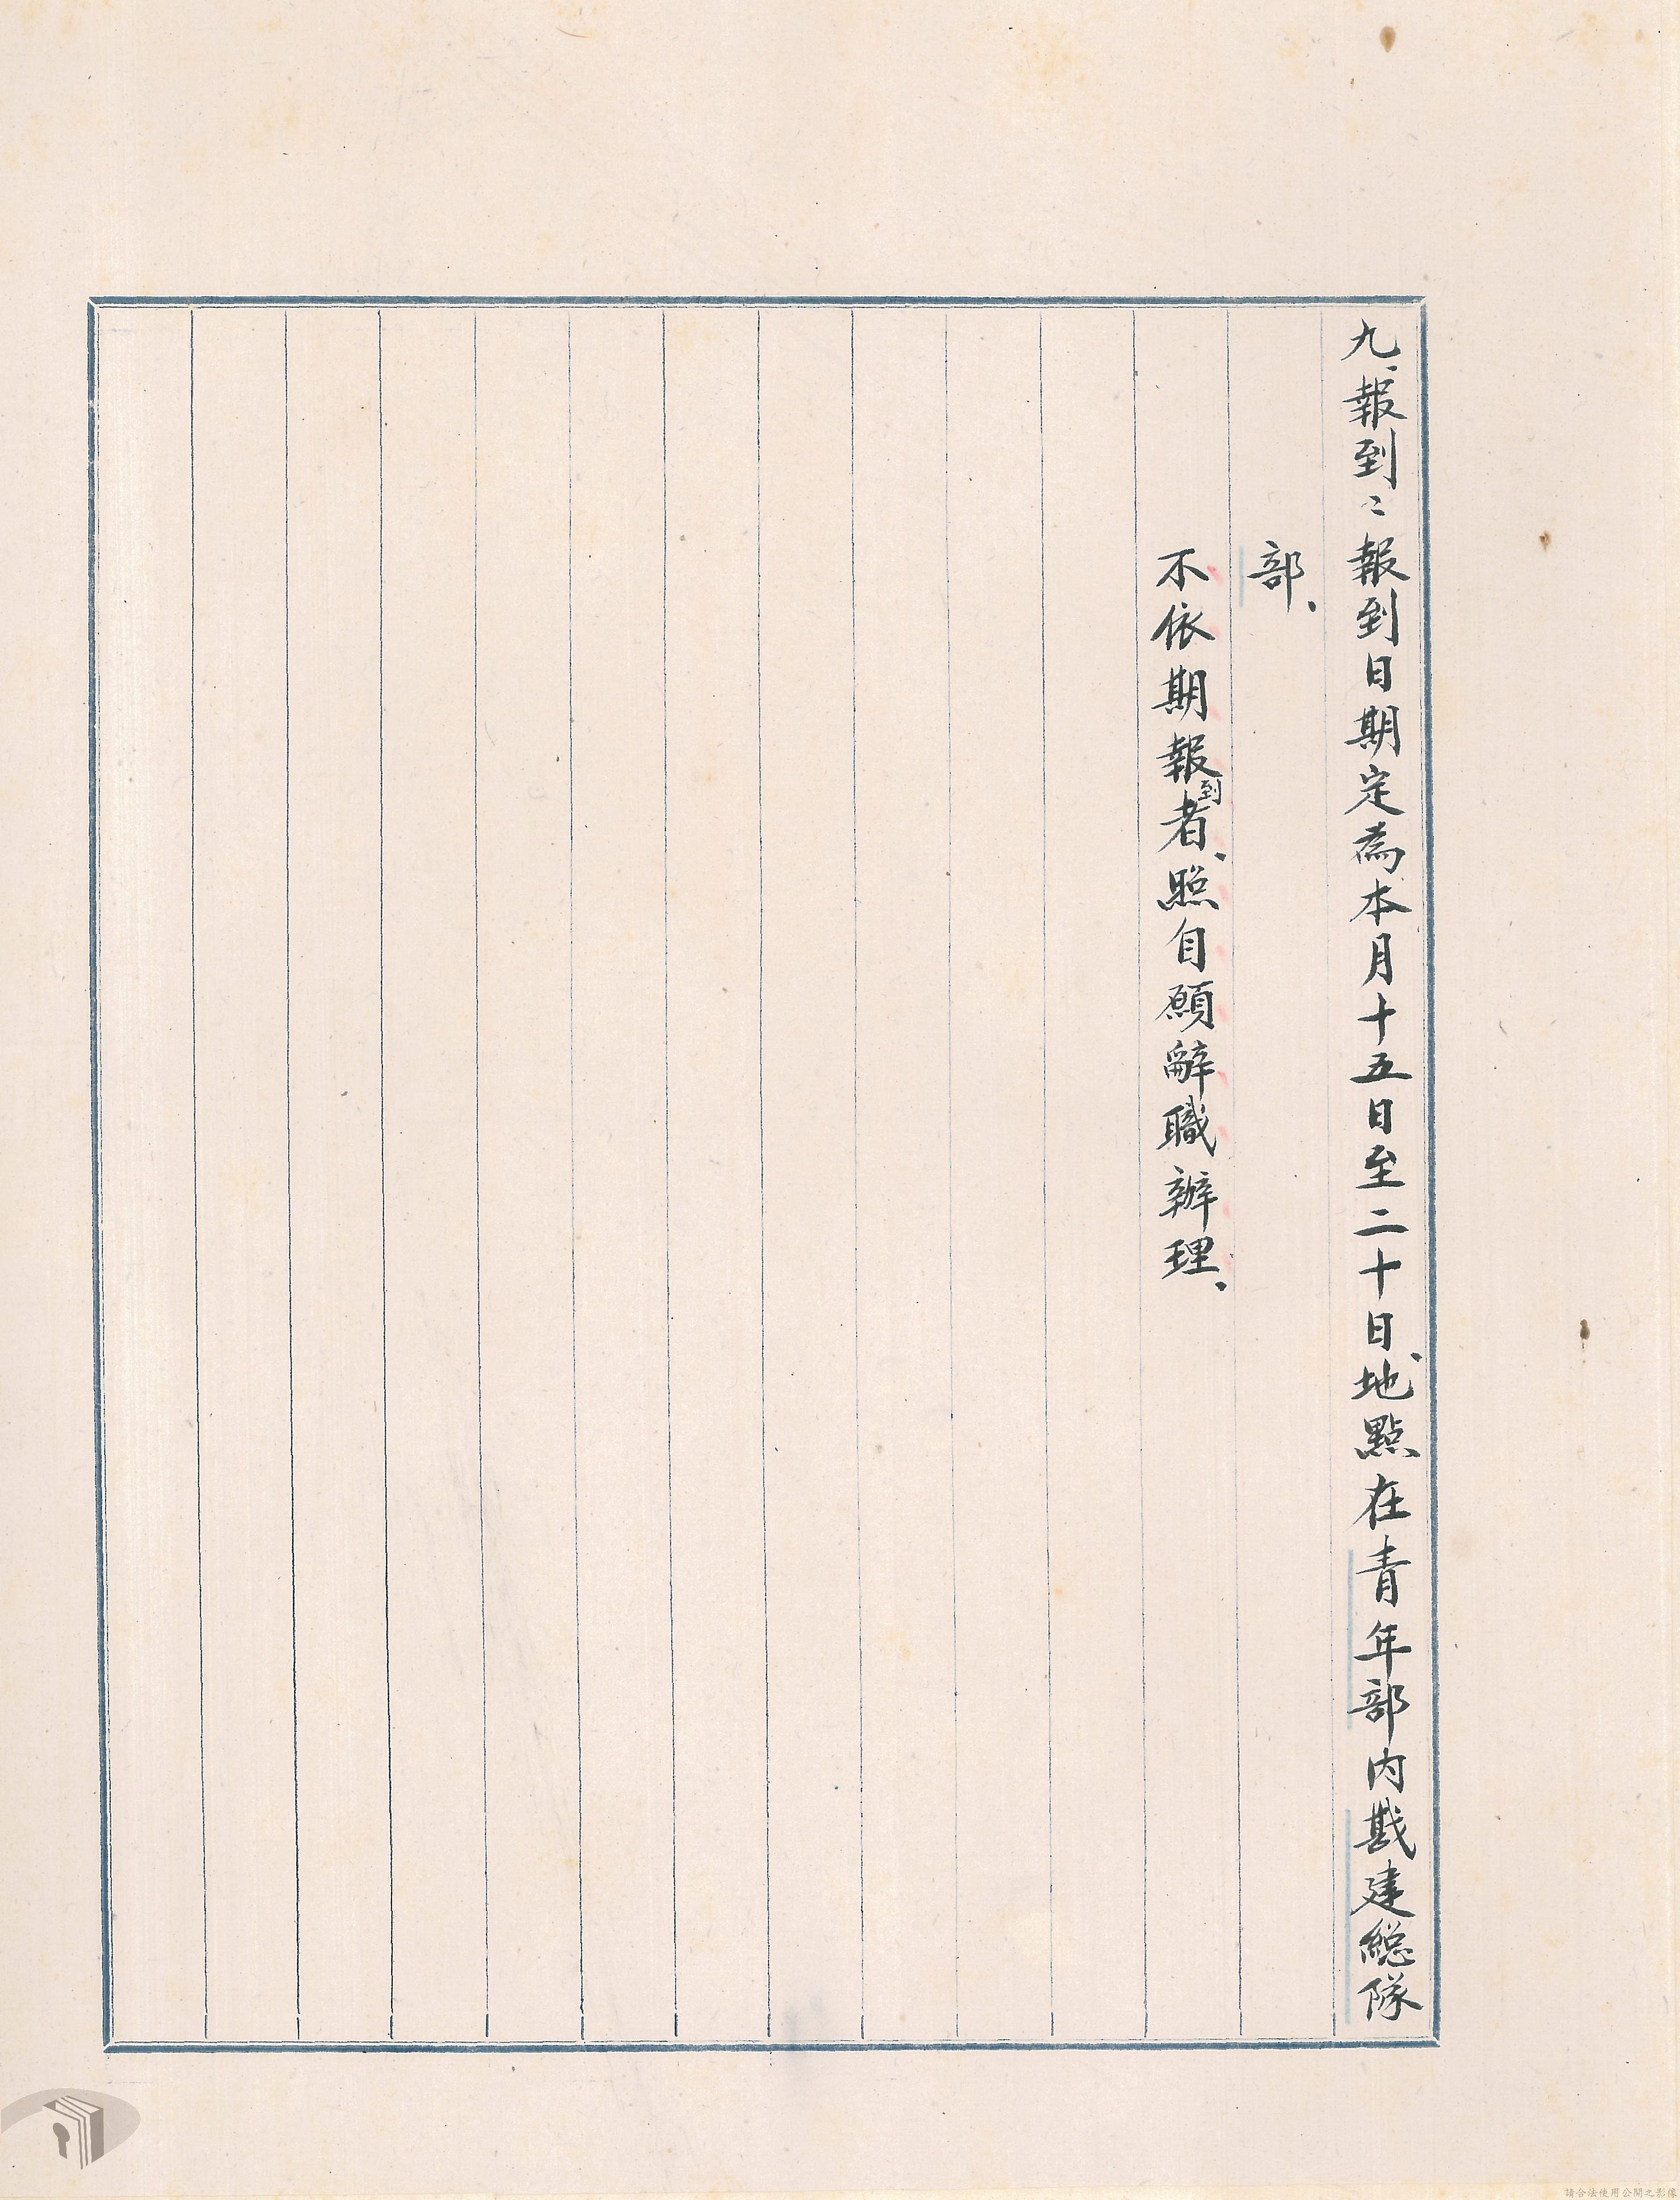 九、報到：報到日期定為本月十五日至二十日、地點在青年部內戡建總隊
部、
不依期報到者、照自願辭職辦理、
請合法使用公開之影像